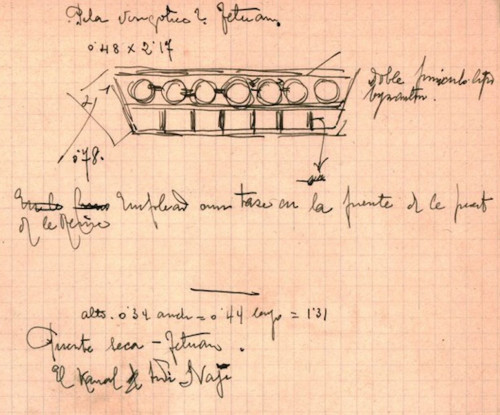 Pila visigotica ?. Tetuan.
0'48 x 2'17
Doble
bizantin.
0'78.
Empleada como taza en la fuente de la puert
de la Reina
alto. 0'34 anch = 0'44 largo = 1'31
Fuente seca - Tetuan.
El Kanal Naji